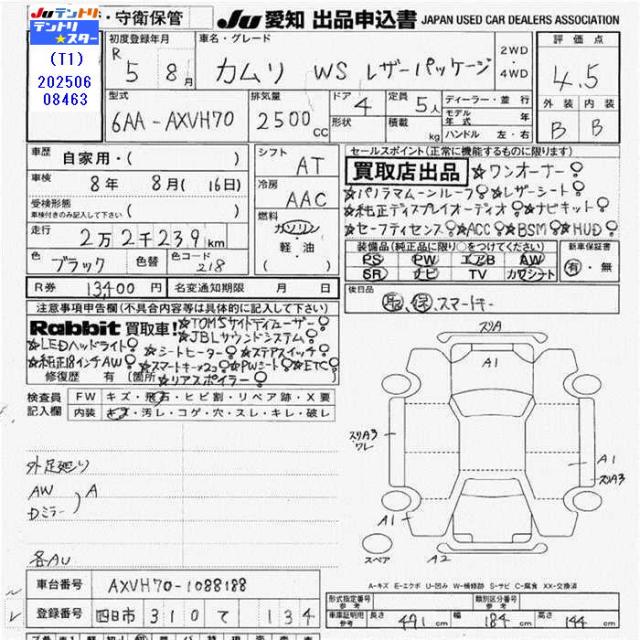 JUテントリ
テントリ★スター
(T1)
202506
08463
・守衛保管
JU 愛知 出品申込書 JAPAN USED CAR DEALERS ASSOCIATION
初度登録年月
R 5年 8月
車名・グレード
カムリ WS レザーパッケージ
2WD
・4WD
評価点
4.5
外装 内装
B B
型式
6AA-AXVH70
排気量
2500cc
ドア 4
形状
定員 5人
積載 kg
ディーラー・並行
モデル年式 年
ハンドル 左・右
車歴 自家用・( )
車検 8年 8月(16日)
受検形態
車検付きのみ記入して下さい ( )
走行 2万2千239km
色 ブラック 色替 色コード 218
シフト AT
冷房 AAC
燃料 ガソリン
・軽・油
( )
R券 13400円 名変通知期限 月 日
セールスポイント(正常に機能するものに限ります)
買取店出品 ☆ワンオーナー
☆パノラマムーンルーフ ☆レザーシート
☆純正ディスプレイオーディオ ☆ナビキット
☆セーフティセンス ☆ACC ☆BSM ☆HUD
装備品(純正品に限り○をつけてください)
PS PW エアB AW
SR ナビ TV カワシート
新車保証書
有・無
後日品
取 保 スマートキー
注意事項申告欄(不具合内容等は具体的に記入して下さい)
Rabbit 買取車! ☆TOM'Sサイドディフューザー
☆LEDヘッドライト ☆JBLサウンドシステム
☆純正18インチAW ☆シートヒーター ☆ステアスイッチ
☆スマートキー×2コ ☆PWシート ☆ETC
修復歴 有(箇所 ☆リアスポイラー )
検査員記入欄
FW キズ・飛石・ヒビ割・リペア跡・X要
内装 キズ・汚レ・コゲ・穴・スレ・キレ・破レ
外足廻り
AW
Dミラー
A
各AU
スリA
A1
スリA3
ワレ
A1
スリA3
A1
A2
スペア
A-キズ E-エクボ U-凹み W-補修跡 S-サビ C-腐食 XX-交換済
車台番号 AXVH70-1088188
登録番号 四日市 310 て 134
形式指定番号
参考
類別区分番号
参考
車車証明用
参考
長さ 491cm
幅 184cm
高さ 144cm